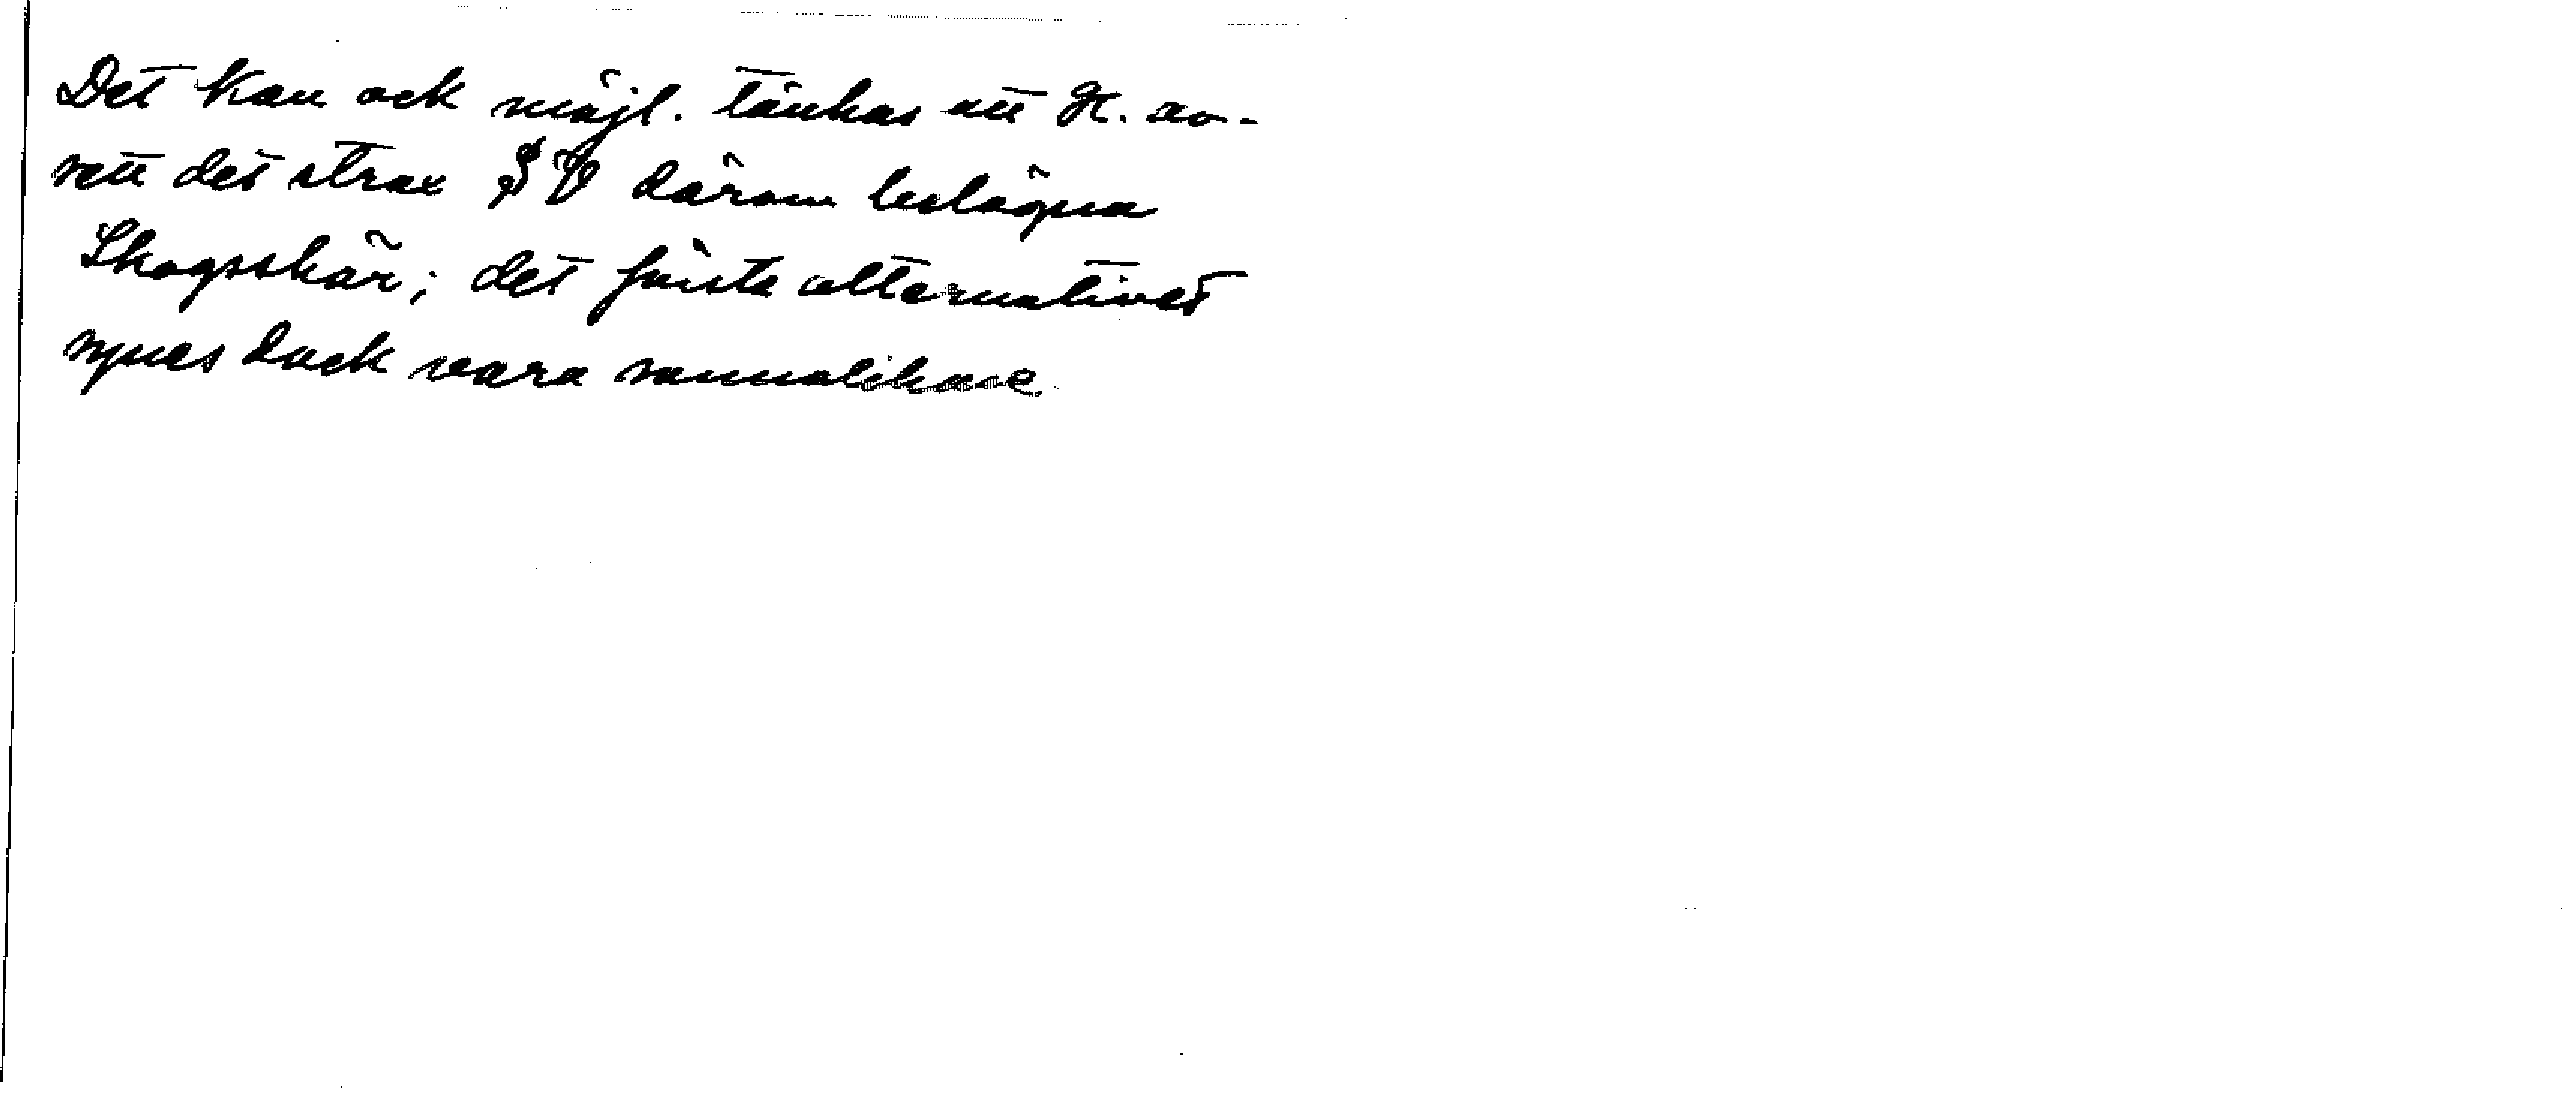 Det kan ock möjl. tänkas att H. av-
sett det strax SV därom belägna
Skogsskär; det första alternativet
synes dock vara sannolikare.